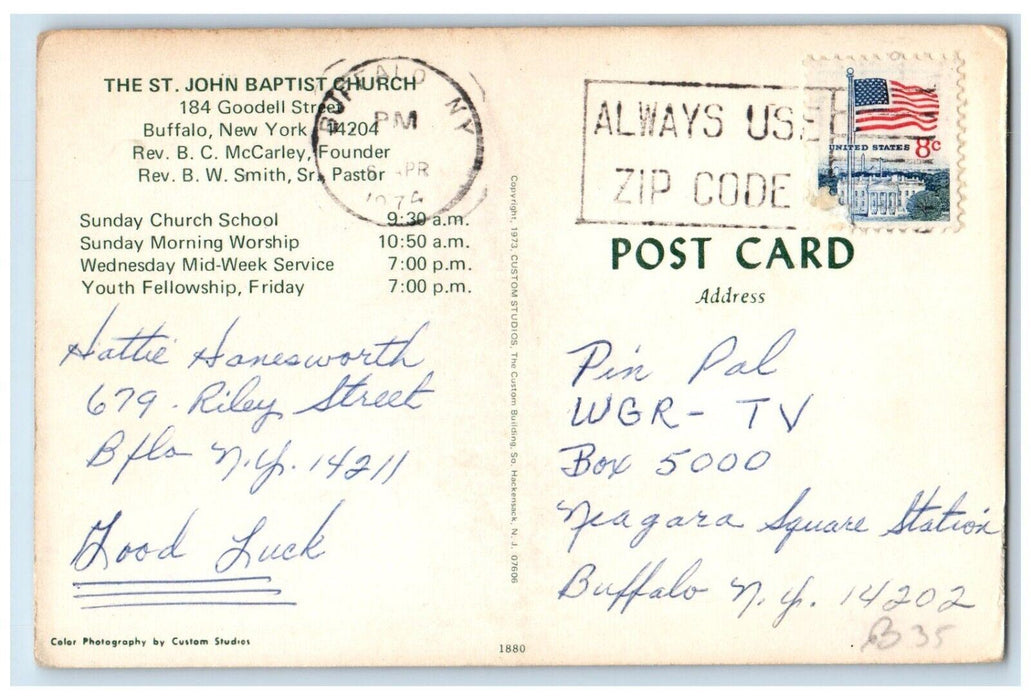 THE ST. JOHN BAPTIST CHURCH
184 Goodell Street
Buffalo, New York 14204
Rev. B. C. McCarley, Founder
Rev. B. W. Smith, Sr. Pastor
Sunday Church School 9:30 a.m.
Sunday Morning Worship 10:50 a.m.
Wednesday Mid-Week Service 7:00 p.m.
Youth Fellowship, Friday 7:00 p.m.
BUFFALO NY
PM
6 APR
1974
Hattie Hanesworth
679 - Riley Street
Bflo N.Y. 14211
Good Luck
Color Photography by Custom Studios
Copyright, 1973, CUSTOM STUDIOS, The Custom Building, So. Hackensack, N. J. 07606
1880
ALWAYS USE
ZIP CODE
UNITED STATES 8c
POST CARD
Address
Pin Pal
WGR- TV
Box 5000
Niagara Square Station
Buffalo N.Y. 14202
B35